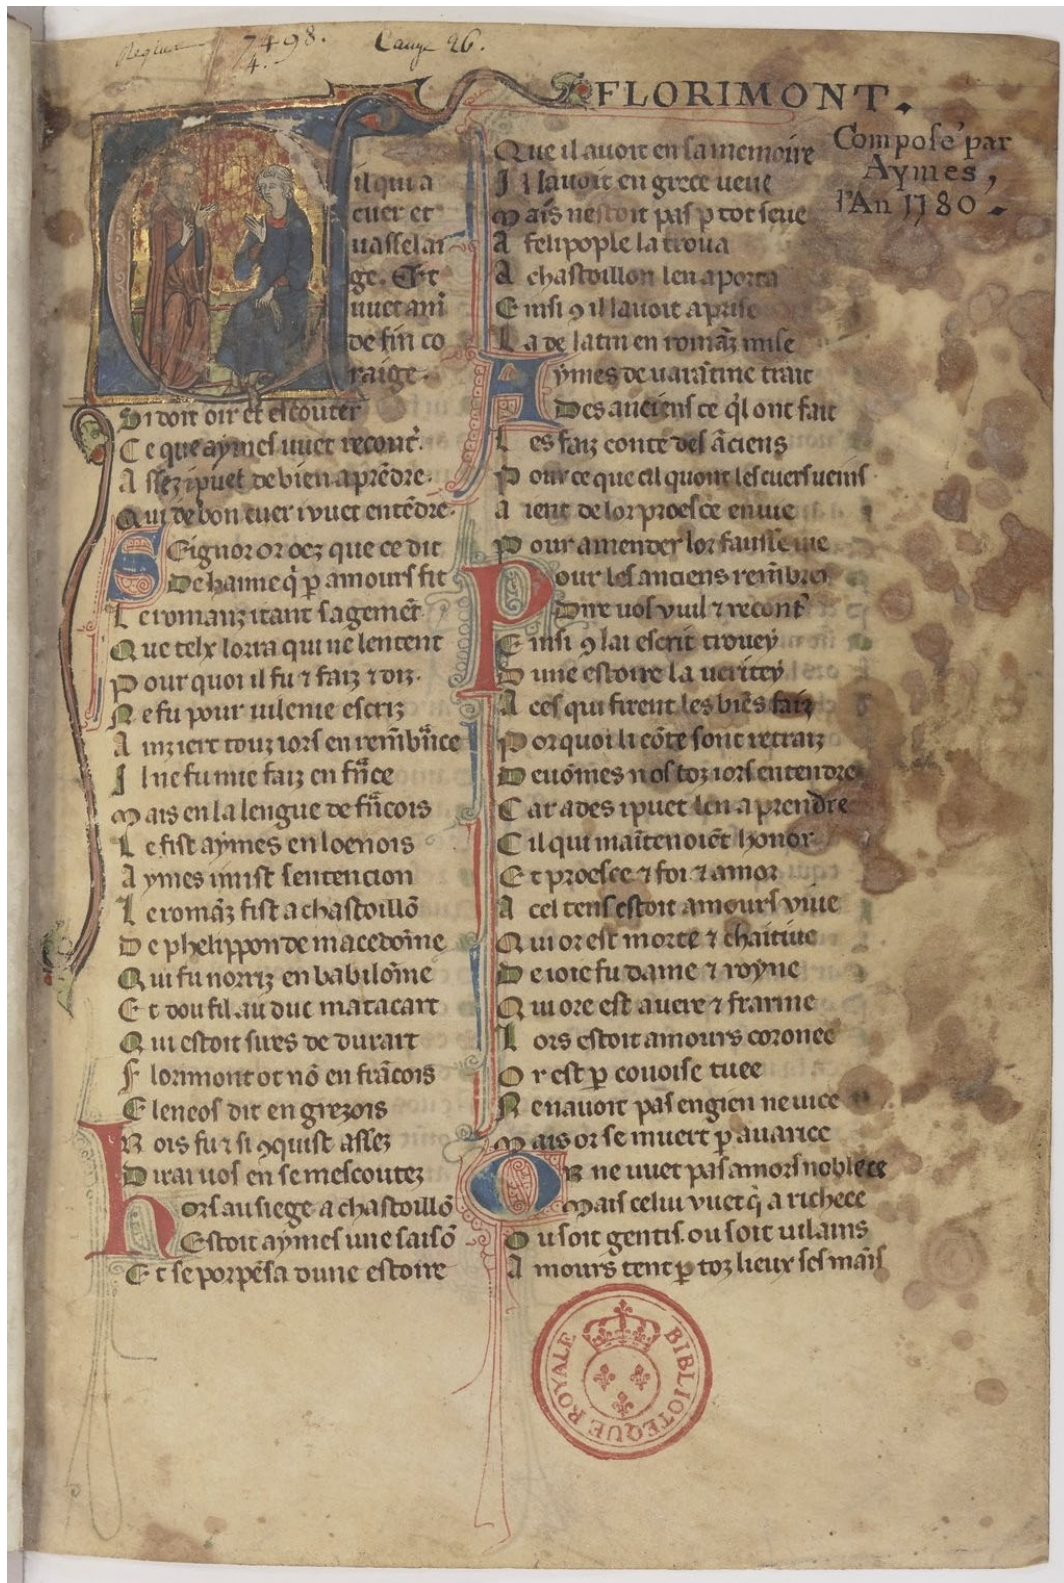 Regius 7498.
4.
Cangé 26.
FLORIMONT.
Composé par
Aymes,
l'An 1180.
Cil qui a
cuer et
uasselai
ge. Et
uuet ami
de fin co
raige.
Si doit oir et escouter
Ce que aymes uuet recont̉.
Assez ipuet de bien aprēdre.
Qui de bon cuer i vuet entēdre.
Seignor or oez que ce dit
De haime q̇ ꝑ amours fit
Le romanz itant sagemēt
Que telx lorra qui ne lentent
Pour quoi il fu ⁊ faiz ⁊ diz.
Ne fu pour uilenie escriz
Ainz iert touz iors en remb̃nce
Il ne fu mie faiz en fñce
Mais en la lengue de fñcois
Le fist aymes en loenois
Aymes imist sentencion
Le romãz fist a chastoillõ
De phelippon de macedoine
Qui fu norriz en babiloine
Et dou fil au duc matacart
Qui estoit sires de durart
Florimont ot nõ en frãcois
Eleneos dit en grezois
Rois fu ⁊ si ꝯquist assez
Dirai uos en se mescoutez
hors au siege a chastoillõ
Estoit aymes une saisõ
Et se porpēsa dune estoire
Que il auoit en sa memoire
Il lauoit en grece ueue
Mais nestoit pas ꝑ tot seue
A felipople la troua
A chastoillon len aporta
Einsi ꝯ il lauoit aprise
La de latin en romãz mise
Aymes de uarãtine trait
Des anciens ce q̇l ont fait
Les faiz conte des ãciens
Pour ce que cil quont les cuers ueins
Aient de lor proesce enuie
Pour amender lor fausse uie
Pour les anciens remb̃rer
Dire uos vuil ⁊ recont̉
Einsi ꝯ lai escrit trouey
Dune estoire la ueritey
A ces qui firent les biēs faiz
Por quoi li cõte sont retraiz
Deuõmes nos toz iors entendre
Car ades ipuet len aprendre
Cil qui maītenoiēt honor
Et proesce ⁊ foi ⁊ amor
A cel tens estoit amours viue
Qui or est morte ⁊ chaitiue
De ioie fu dame ⁊ royne
Qui ore est auere ⁊ frarine
Lors estoit amours coronee
Or est ꝑ couoise tuee
Ne nauoit pas engien ne uice
Mais or se muert ꝑ auarice
OR ne uuet pas amors noblece
Mais celui vuet q̇ a richece
Ou soit gentis. ou soit uilains
Amours tent ꝑ toz lieux ses maīs
BIBLIOTEQUE ROYALE